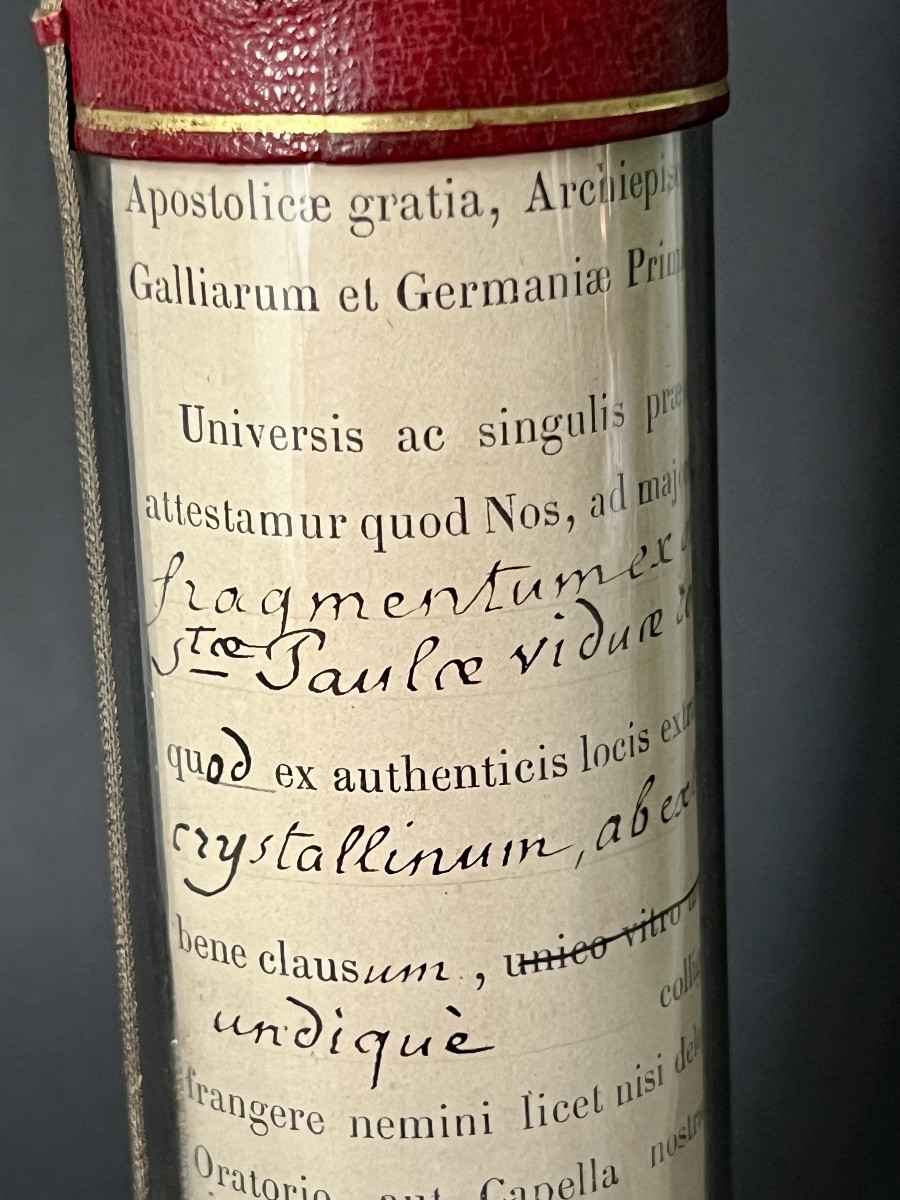 Apostolicæ gratia, Archiepis
Galliarum et Germaniæ Prim
Universis ac singulis præ
attestamur quod Nos, ad maj
fragmentum ex
stæ Paulæ viduæ
quod ex authenticis locis extr
crystallinum, ab ex
bene clausum, unico vitro
colli
undiquè
frangere nemini licet nisi de
Oratorio aut Capella nostr